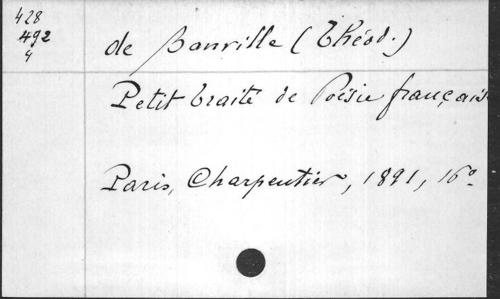 428
492
4
de Banville (Théod.)
Petit traité de Poésie français
Paris, Charpentier, 1891, 16°